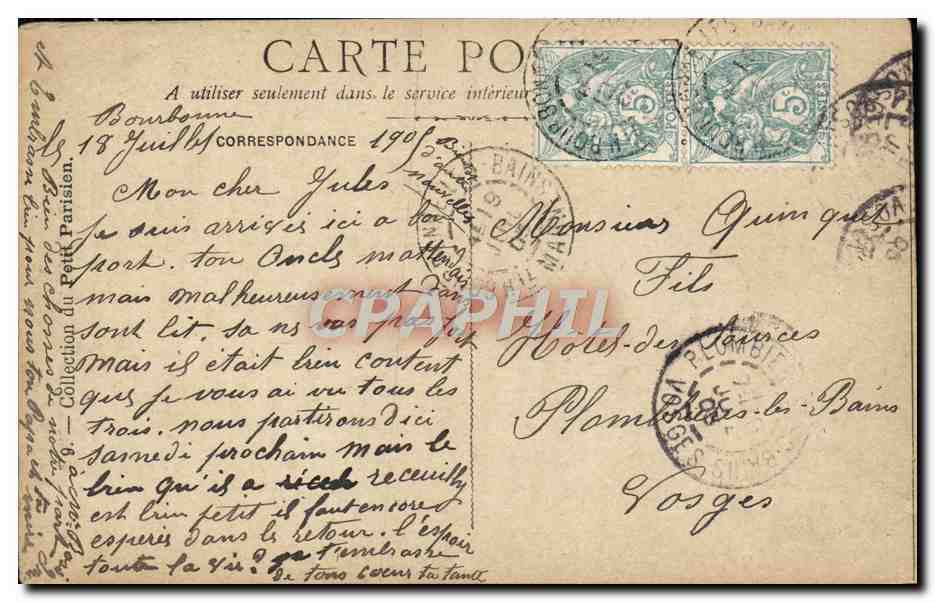 CARTE PO
A utiliser seulement dans le service intérieur
CORRESPONDANCE
Bourbonne
18 Juillet 1905
Mon cher Jules
Je suis arrivée ici a bon
port. ton Oncle mattendait
mais malheureusement dans
sont lit, sa ne vas pas fort
mais il était bien content
que je vous ai vu tous les
trois. nous partirons dici
samedi prochain mais le
bien qu'il a receuilly
est bien petit il faut encore
esperer dans le retour. l'espoir
toute la vie? je t'embrasse
de tous coeur ta tante
Monsieur Quinquet
Fils
Hotel des Sources
Plombières-les-Bains
Vosges
Collection du Petit Parisien.
Bien des choses de notre part
Embrasse bien pour nous ton Papa et ta mère
PLOMBIE
VOSGES
BAINS
5c
5c
POSTES
CPAPHIL